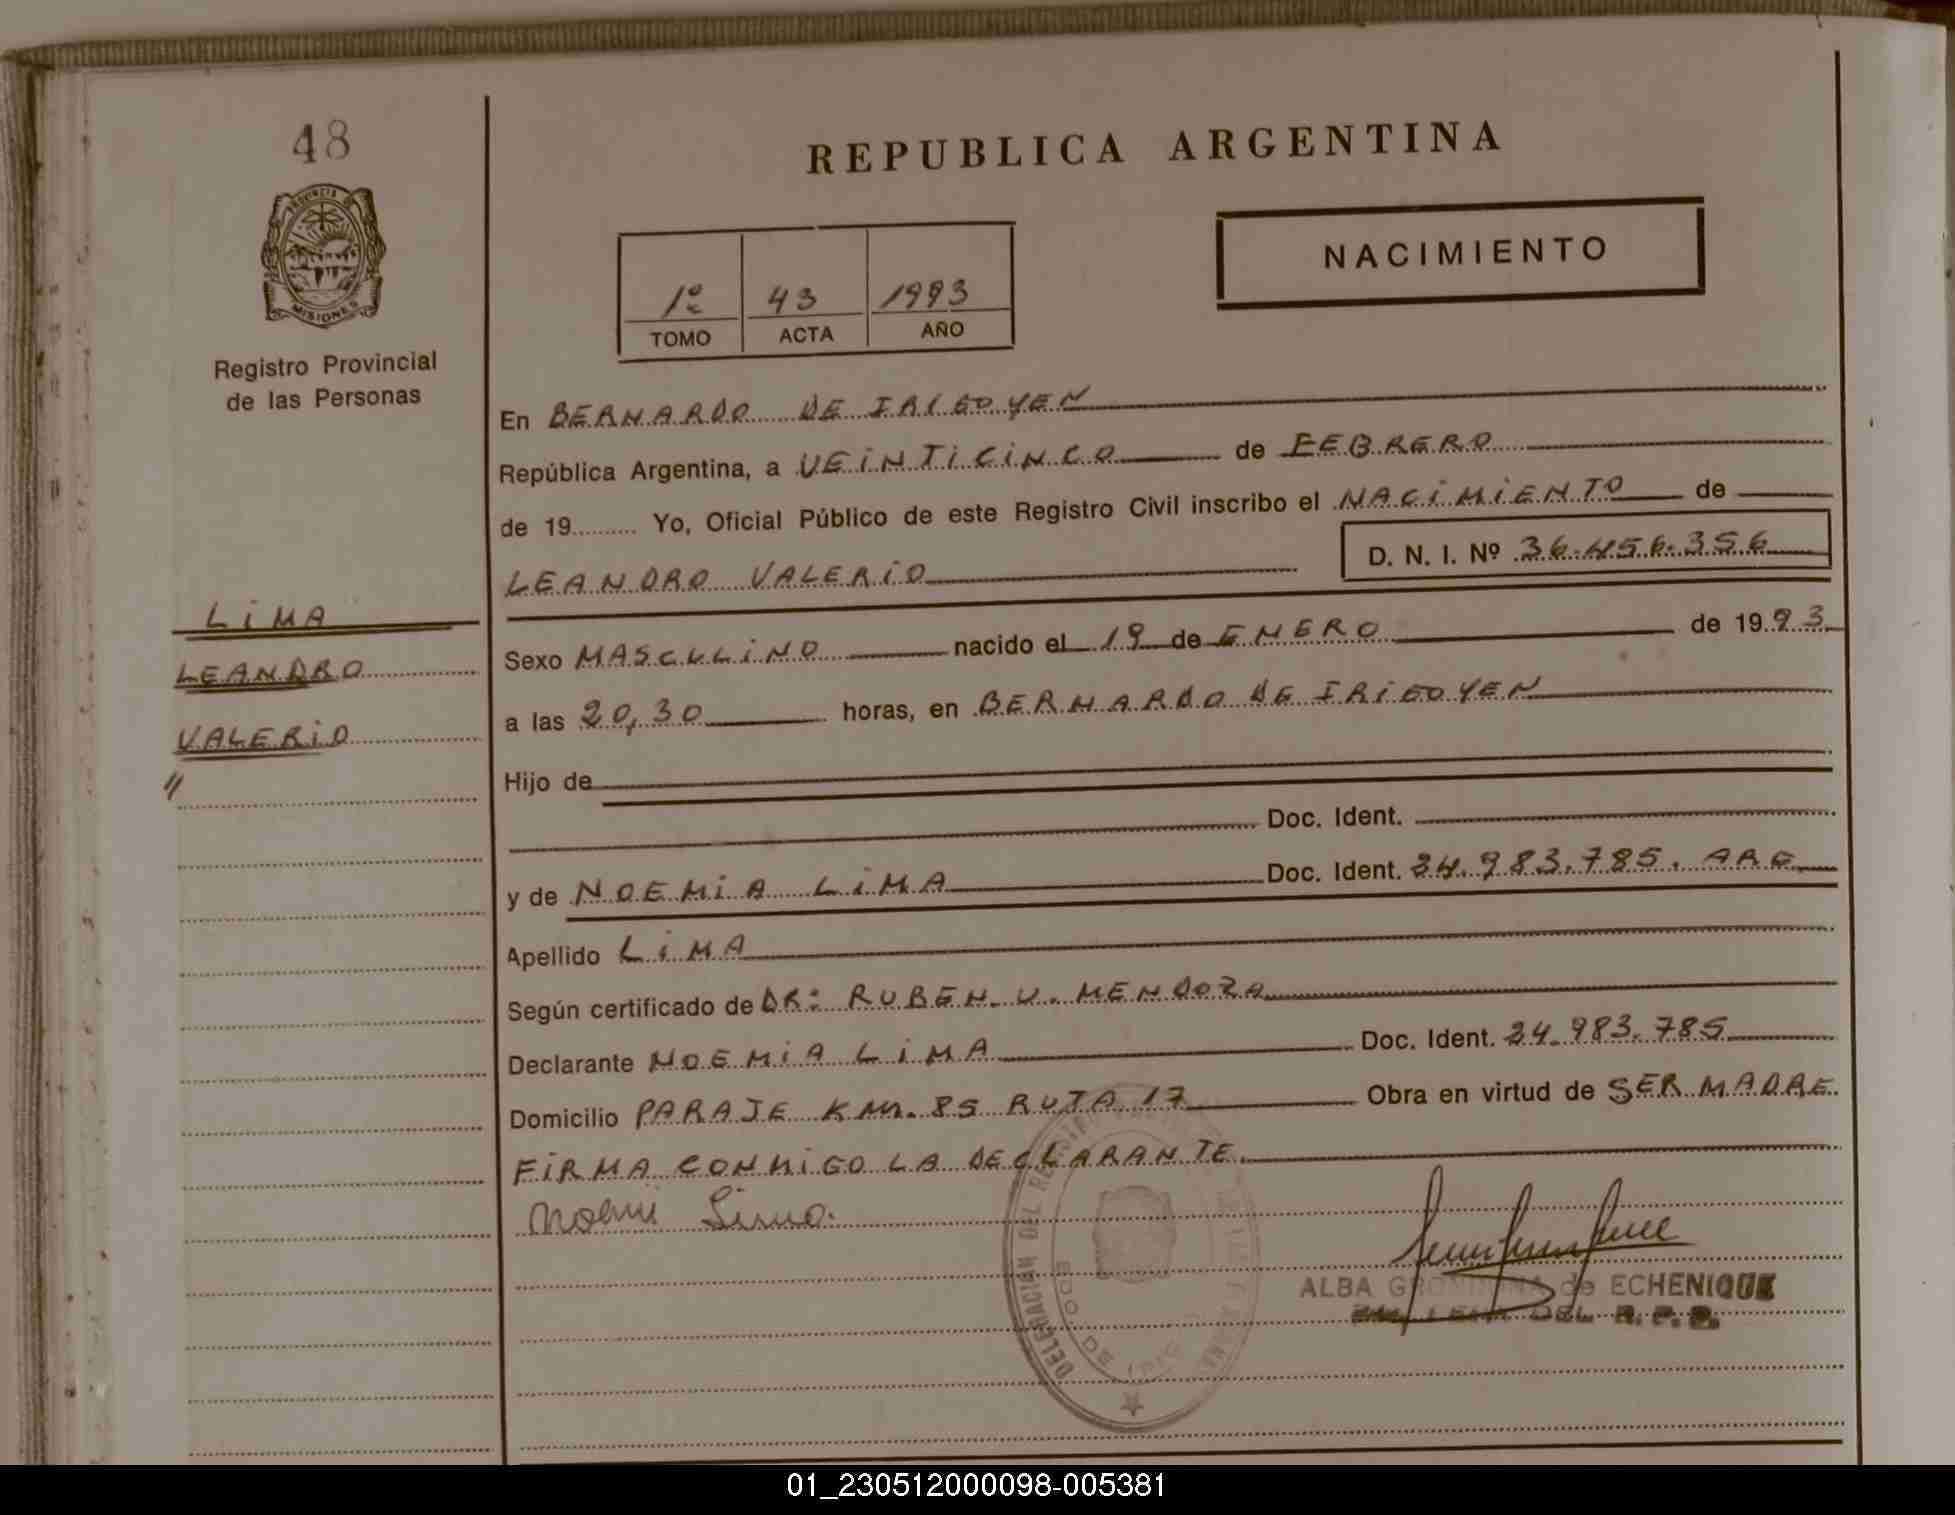 48
PROVINCIA DE
MISIONES
Registro Provincial
de las Personas
LIMA
LEANDRO
VALERIO
"
REPUBLICA ARGENTINA
1º 43 1993
TOMO ACTA AÑO
NACIMIENTO
En BERNARDO DE IRIGOYEN
República Argentina, a VEINTICINCO de FEBRERO
de 19 Yo, Oficial Público de este Registro Civil inscribo el NACIMIENTO de
LEANDRO VALERIO D. N. I. Nº 36.456.356
Sexo MASCULINO nacido el 19 de ENERO de 1993
a las 20,30 horas, en BERNARDO DE IRIGOYEN
Hijo de
Doc. Ident.
y de NOEMIA LIMA Doc. Ident. 24.983.785. ARG
Apellido LIMA
Según certificado de DR: RUBEN. U. MENDOZA
Declarante NOEMIA LIMA Doc. Ident. 24.983.785
Domicilio PARAJE KM. 85 RUTA 17 Obra en virtud de SER MADRE
FIRMA CONMIGO LA DECLARANTE.
Lima
DELEGACION DEL
ALBA de ECHENIQUE
DEL R.P.P.
01_230512000098-005381